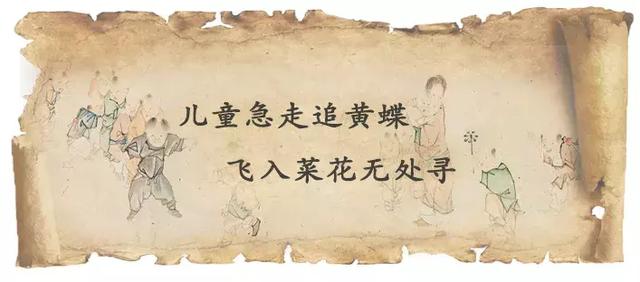 儿童急走追黄蝶
飞入菜花无处寻